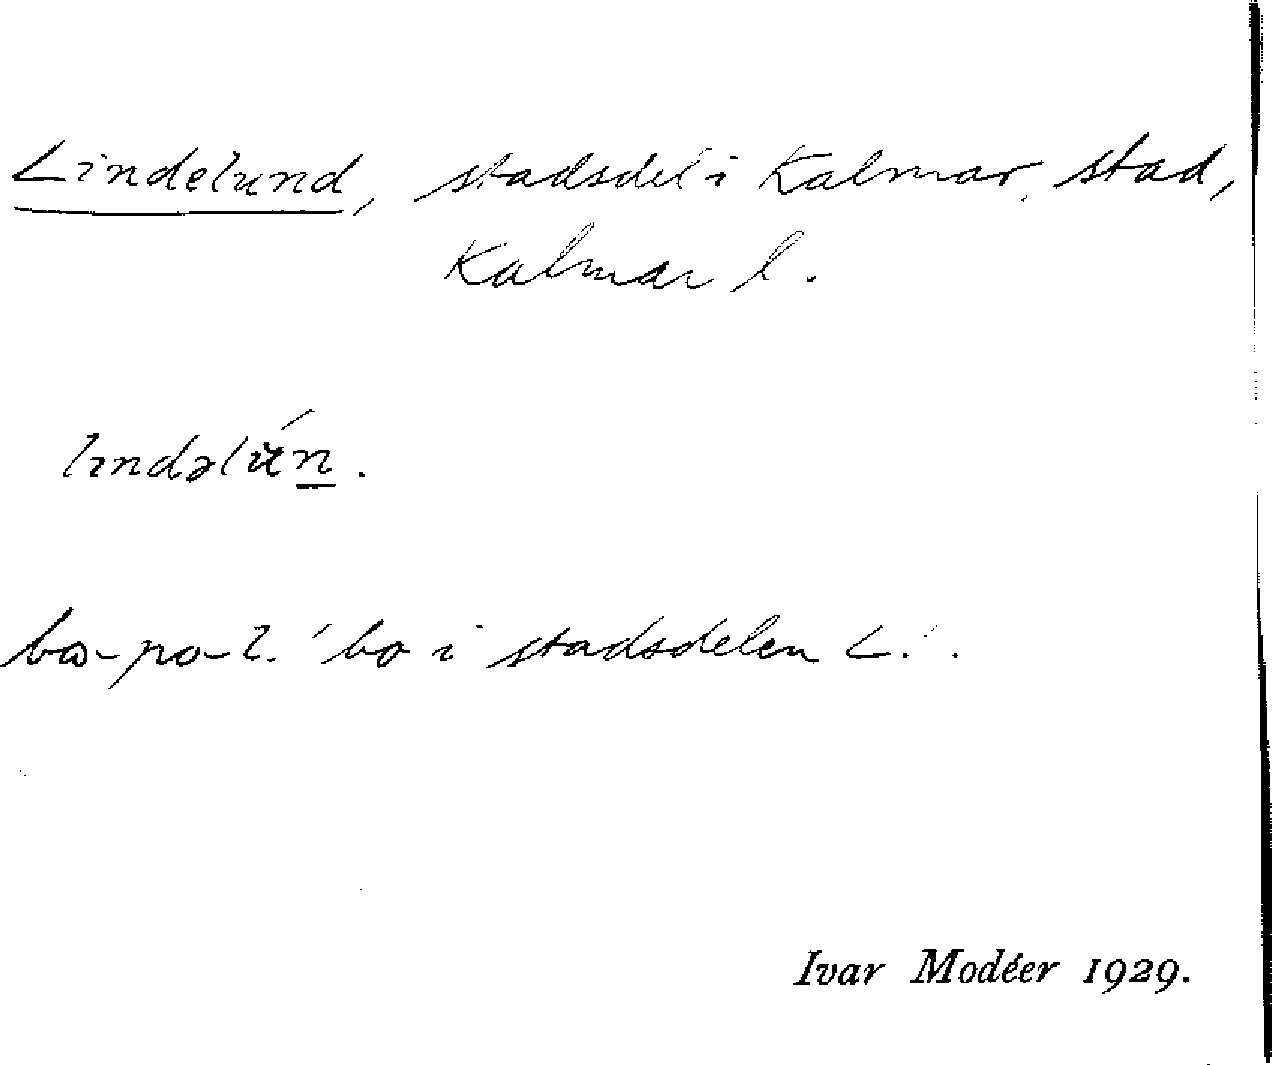 Lindelund, stadsdel i Kalmar stad,
Kalmar l.
lındəlún.
bo- po- l. 'bo i stadsdelen L.'.
Ivar Modéer 1929.